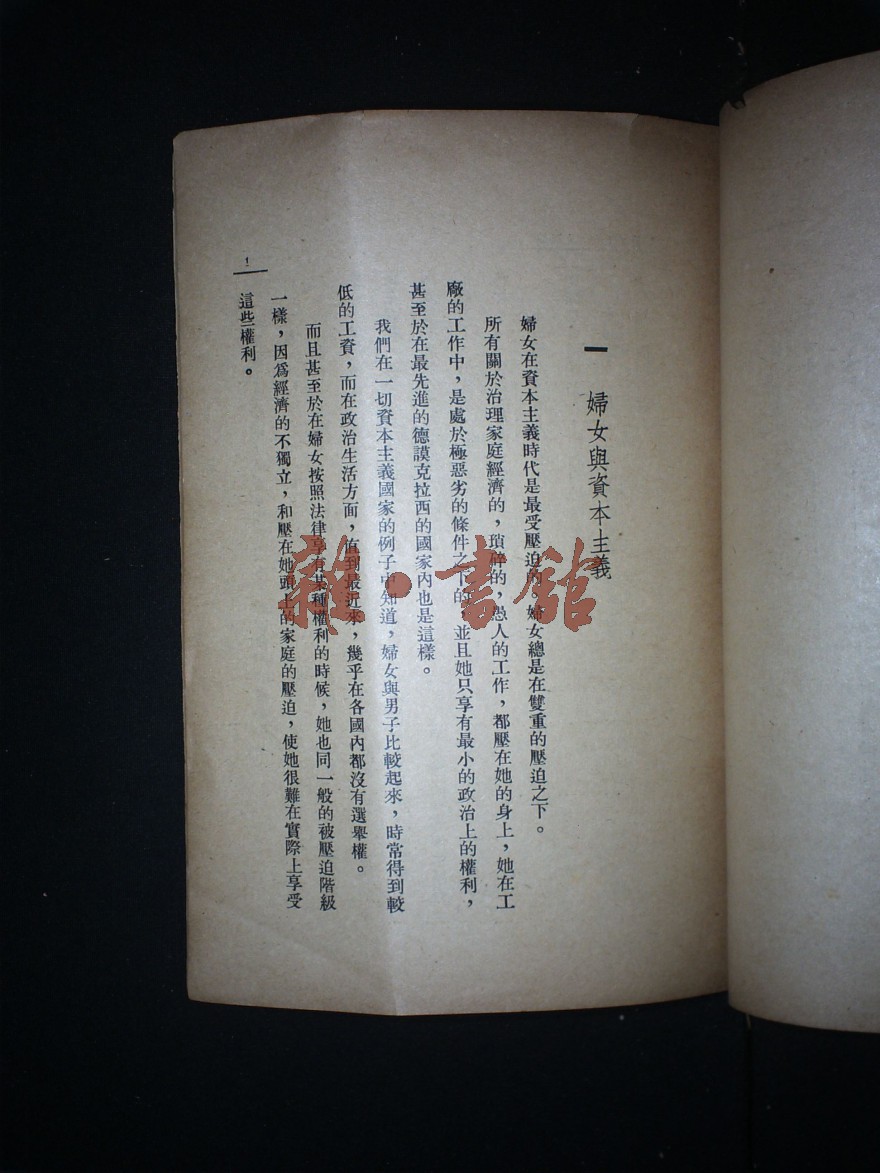 一 婦女與資本主義
婦女在資本主義時代是最受壓迫的。婦女總是在雙重的壓迫之下。
所有關於治理家庭經濟的，瑣碎的，愚人的工作，都壓在她的身上，她在工
廠的工作中，是處於極惡劣的條件之下的，並且她只享有最小的政治上的權利，
甚至於在最先進的德謨克拉西的國家內也是這樣。
我們在一切資本主義國家的例子中知道，婦女與男子比較起來，時常得到較
低的工資，而在政治生活方面，直到最近來，幾乎在各國內都沒有選舉權。
而且甚至於在婦女按照法律享有某種權利的時候，她也同一般的被壓迫階級
一樣，因為經濟的不獨立，和壓在她頭上的家庭的壓迫，使她很難在實際上享受
這些權利。
1
雜·書館